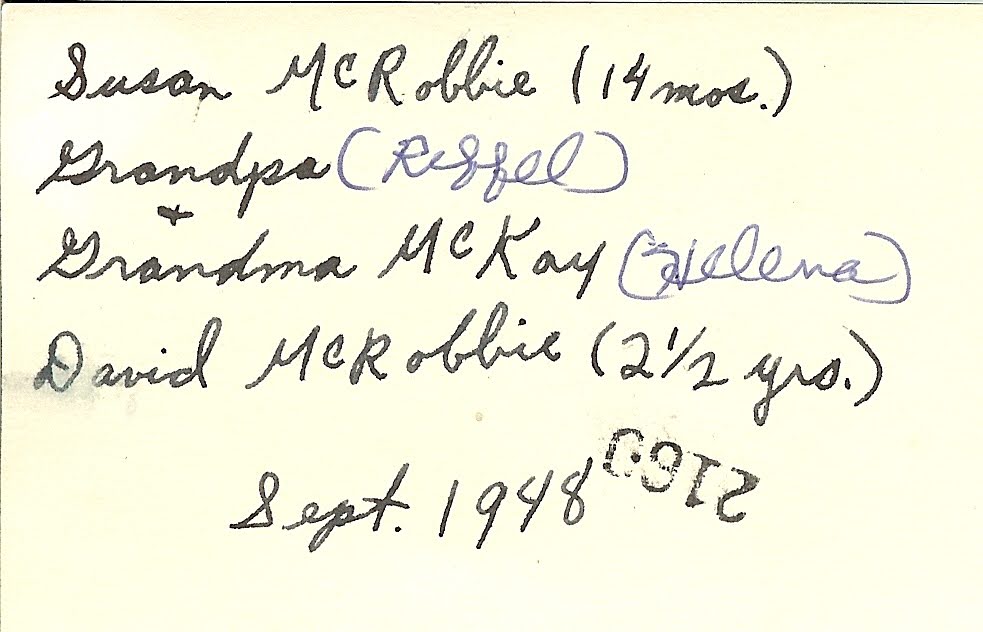 Susan McRobbie (14 mos.)
Grandpa (Reffel)
+
Grandma McKay (Helena)
David McRobbie (2 1/2 yrs.)
Sept. 1948